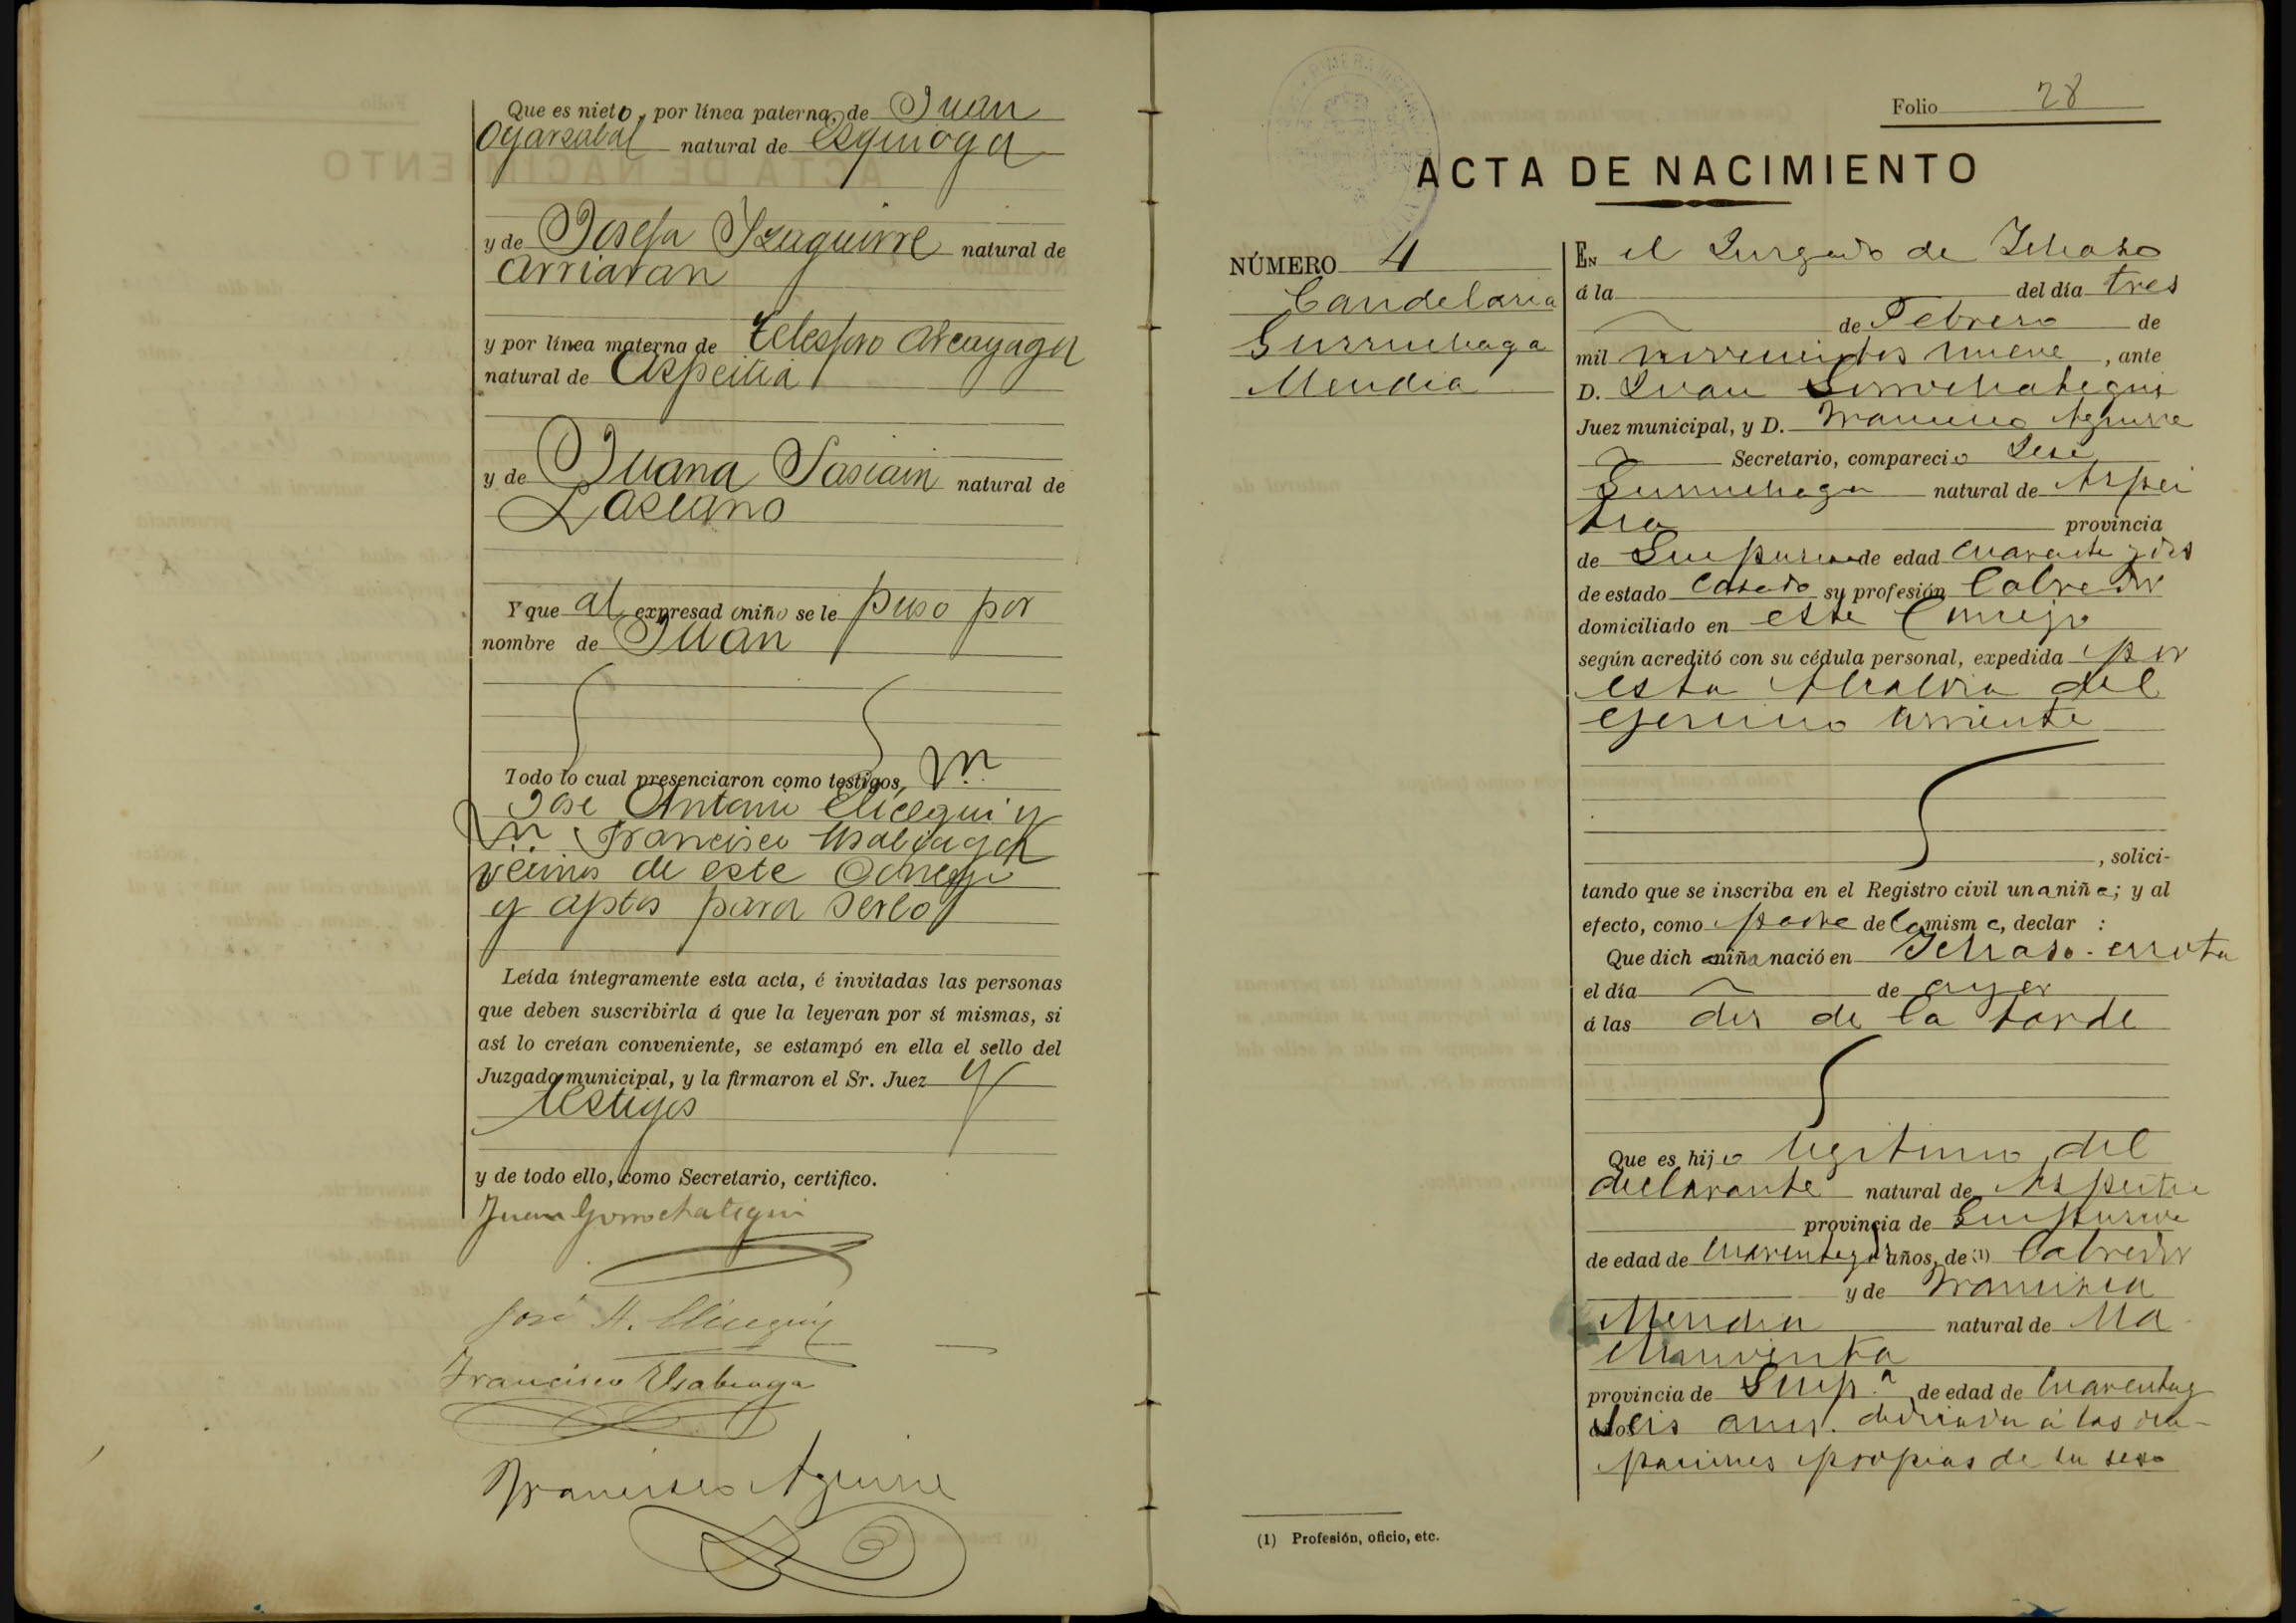 Que es nieto, por línea paterna, de Juan
Oyarzabal natural de Esquioga
y de Josefa Yzaguirre natural de
Arriaran
y por línea materna de Telesforo Arcayaga
natural de Aspeitia
y de Juana Sasiain natural de
Lascano
Y que al expresado niño se le puso por
nombre de Juan
Todo lo cual presenciaron como testigos,
Jose Antonio Elicegui y
Francisco Usabiaga
vecinos de este Concejo
y aptos para serlo
Leída íntegramente esta acta, é invitadas las personas
que deben suscribirla á que la leyeran por sí mismas, si
así lo creían conveniente, se estampó en ella el sello del
Juzgado municipal, y la firmaron el Sr. Juez y
testigos
y de todo ello, como Secretario, certifico.
Juan Gorrochategui
José A. Elicegui
Francisco Usabiaga
Francisco Aguirre
Folio 28
ACTA DE NACIMIENTO
NÚMERO 4
Candelaria
Gurruchaga
Mendia
EN el Juzgado de Ichaso
á la del día tres
de Febrero de
mil novecientos nueve, ante
D. Juan Gorrochategui
Juez municipal, y D. Francisco Aguirre
Secretario, compareció José
Gurruchaga natural de Aspei
tia provincia
de Guipuzcoa de edad cuarenta y dos
de estado casado su profesión labrador
domiciliado en este Concejo
según acreditó con su cédula personal, expedida por
esta Alcaldia del
ejercicio corriente
, solici-
tando que se inscriba en el Registro civil una niña; y al
efecto, como padre de la misma, declar :
Que dicha niña nació en Ichaso-errota
el día de ayer
á las dos de la tarde
Que es hijo legitimo del
declarante natural de Aspeitia
provincia de Guipuzcoa
de edad de cuarenta y dos años, de (1) labrador
y de Francisca
Mendia natural de
provincia de Guip.a de edad de cuarenta y
seis años. dedicada á las ocu-
paciones propias de su sexo
(1) Profesión, oficio, etc.